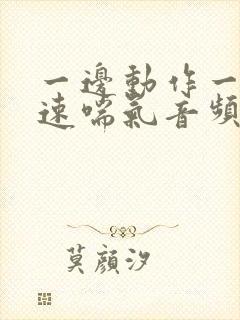 一邊動作一
速喘氣音頻
莫顏汐